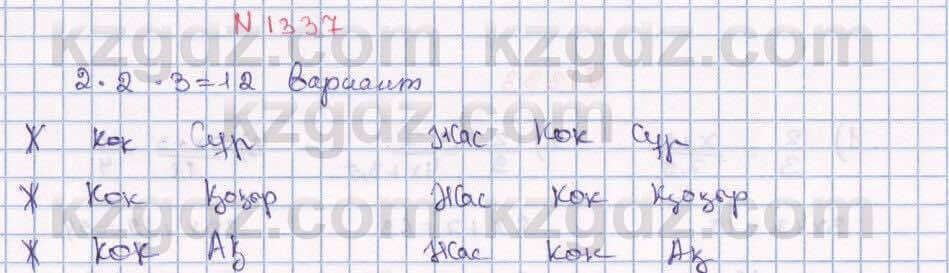 N 1337
2·2·3=12 вариант
Ж Көк Сұр Жас Көк Сұр
Ж Көк Қоңыр Жас Көк Қоңыр
Ж Көк Ақ Жас Көк Ақ
kzgdz.com kzgdz.com
kzgdz.com kzgdz.com
kzgdz.com kzgdz.com